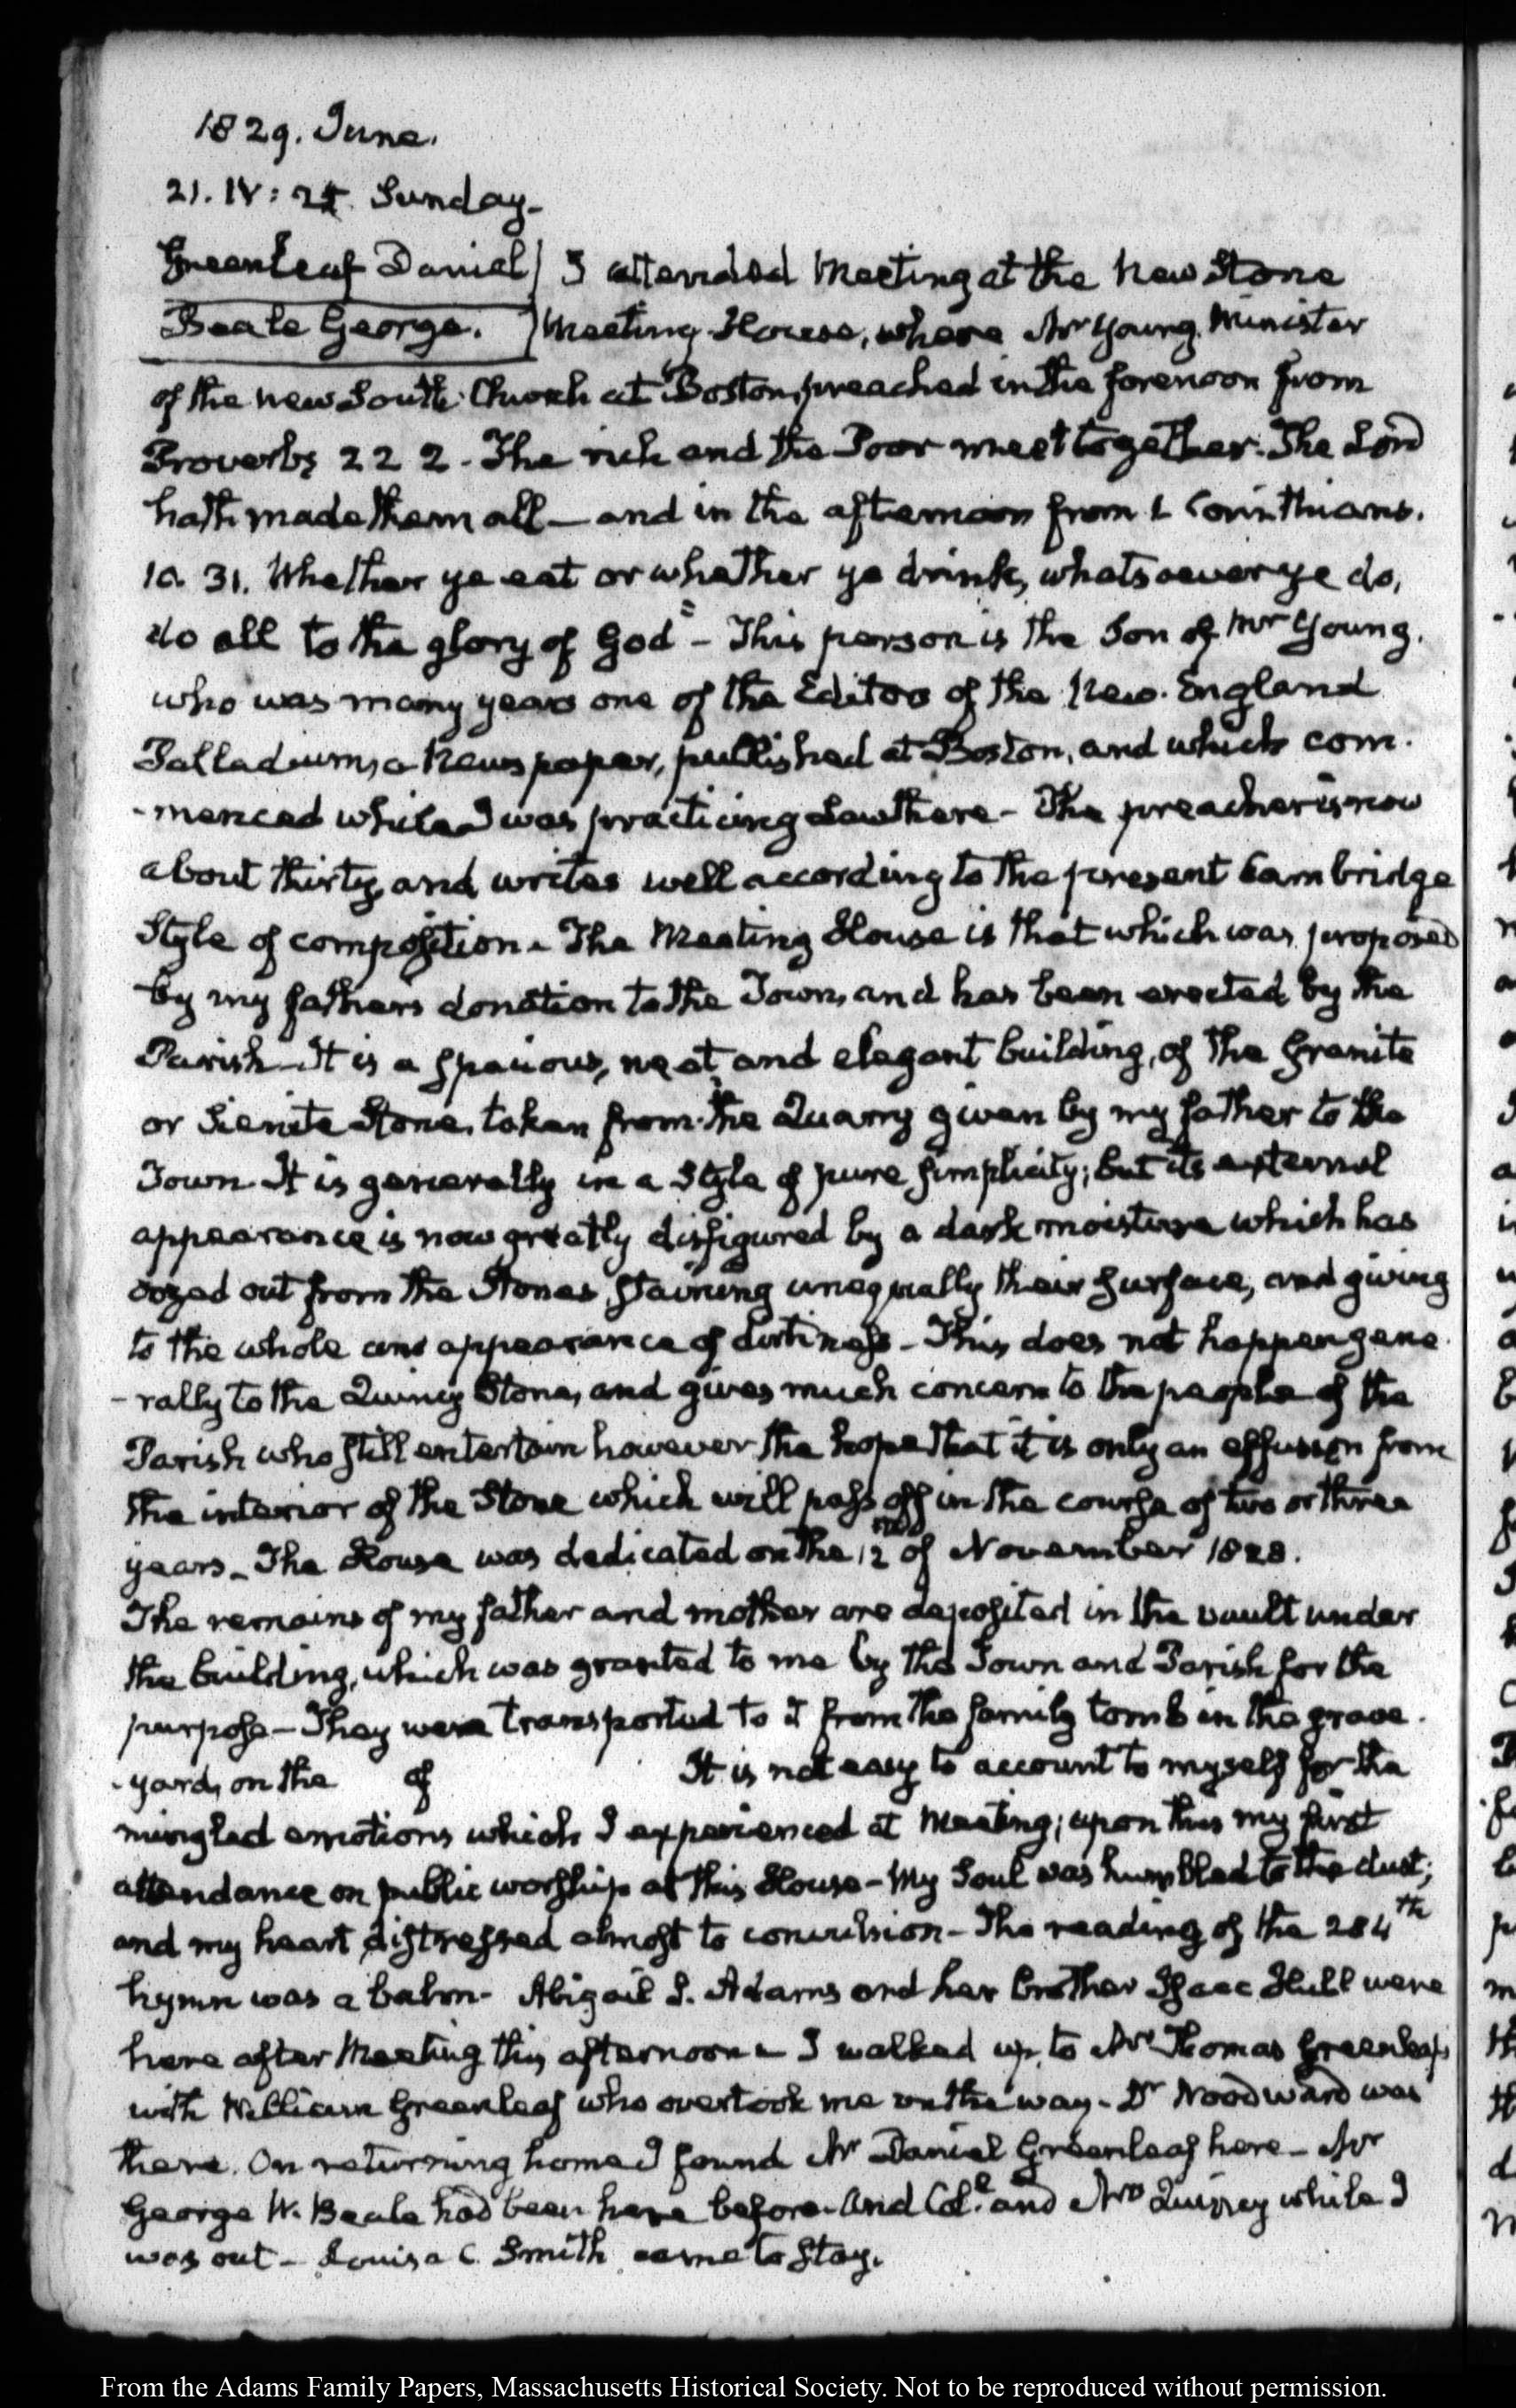 1829. June.
21. IV: 25. Sunday-
Greenleaf Daniel) I attended Meeting at the new Stone
Beale George. ) Meeting House, where Mr Young, Minister
of the new South Church at Boston, preached in the forenoon from
Proverbs 22 2. The rich and the Poor meet together. The Lord
hath made them all — and in the afternoon from 1 Corinthians.
10. 31. Whether ye eat or whether ye drink, whatsoever ye do,
do all to the glory of God" - This person is the Son of Mr Young.
who was many years one of the Editors of the New. England
Palladium, a Newspaper, published at Boston, and which com.
-menced while I was practicing Law there - The preacher is now
about thirty, and writes well according to the present Cambridge
Style of composition. The Meeting House is that which was proposed
by my fathers donation to the Town, and has been erected by the
Parish - It is a spacious, neat, and elegant building, of the Granite
or Sienite Stone, taken from the Quarry given by my father to the
Town. It is generally in a Style of pure simplicity; but its external
appearance is now greatly disfigured by a dark moisture which has
oozed out from the Stones, staining unequally their surface, and giving
to the whole an appearance of dirtiness - This does not happen gene
-rally to the Quincy Stone, and gives much concern to the people of the
Parish who still entertain however the hope that it is only an effusion from
the interior of the Stone which will pass off in the course of two or three
years - The House was dedicated on the 12th of November 1828.
The remains of my father and mother are deposited in the vault under
the building, which was granted to me by the Town and Parish for the
purpose - They were transported to it from the family tomb in the grave.
-yard, on the of It is not easy to account to myself for the
mingled emotions which I experienced at Meeting; upon this my first
attendance on public worship at this House - My Soul was humbled to the dust;
and my heart distressed almost to convulsion - The reading of the 284th
hymn was a balm - Abigail S. Adams and her brother Isaac Hull were
here after Meeting this afternoon - I walked up to Mr Thomas Greenleaf's
with William Greenleaf who overtook me on the way - Dr Woodward was
there. On returning home I found Mr Daniel Greenleaf here - Mr
George W. Beale had been here before. And Col. and Mrs Quincy while I
was out - Louisa C. Smith came to stay.
From the Adams Family Papers, Massachusetts Historical Society. Not to be reproduced without permission.